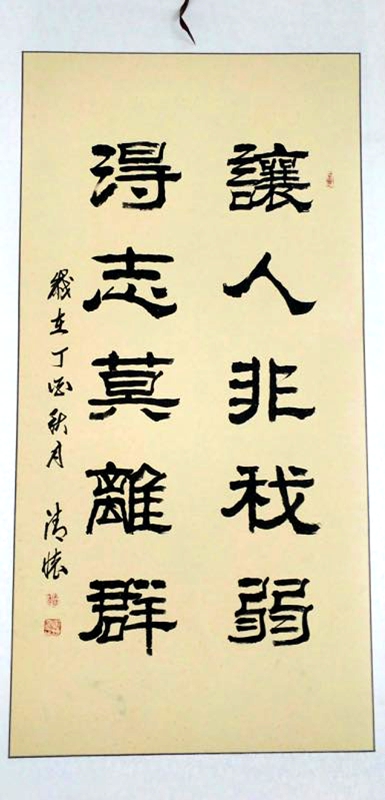 讓人非我弱
得志莫離群
歲在丁酉秋月 清懷